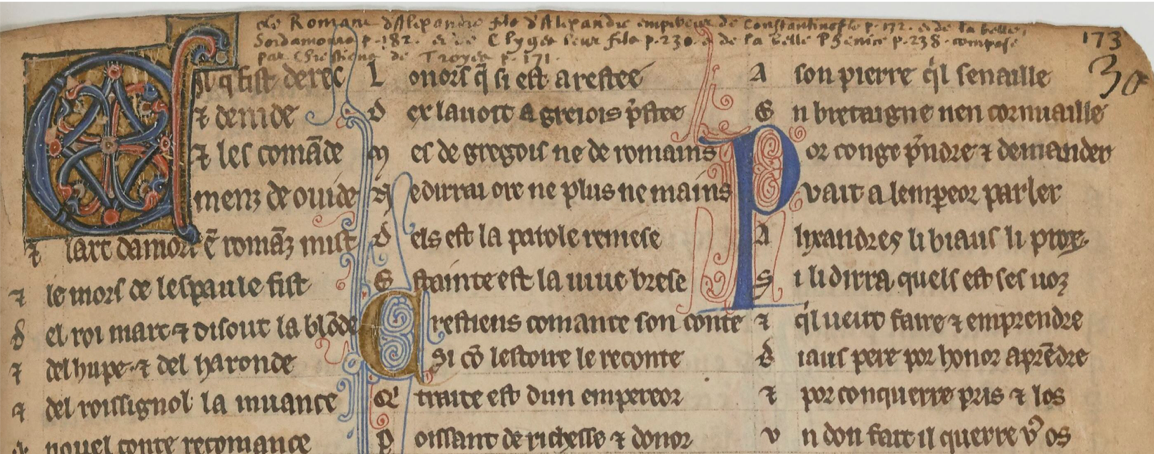 Le Romans d'Alexandre filz d'Alexandre empereur de Constantinople p. 172. & de la belle
Sordamours p. 182. & de Clyges leur filz p. 230. & de la belle Phenice p. 238. composé
par Chrestiens de Troyes p. 171.
173
30
Cil q fist derec
⁊ denide
⁊ les comāde
menz de ouide
⁊ lart damors ē romāz mist
⁊ le mors de lespaule fist
del roi marc ⁊ disout la blōde
⁊ del hupe ⁊ del haronde
⁊ del roissignol la muance
nouel conte recomance
L onors q̄ si est arestee
d ex lavoit a grejois p̄stee
m es de gregois ne de romains
N edirrai ore ne plus ne mains
d els est la parole remese
E stainte est la vive brese
Crestiens comance son conte
si cō lestoire le reconte
Q traite est dun empereor
p oissant de richesse ⁊ donor
A son pierre q̓l senaille
E n bretaigne nen cornuaille
Por conge p̄ndre ⁊ demander
vait a lempeor parler
A lixandres li biaus li proz
S i li dirra quels est ses voz
⁊ q̓l veut faire ⁊ emprendre
B iaus pere por honor aprēdre
⁊ por conquerre pris ⁊ los
v n don fait il querre v̄ os